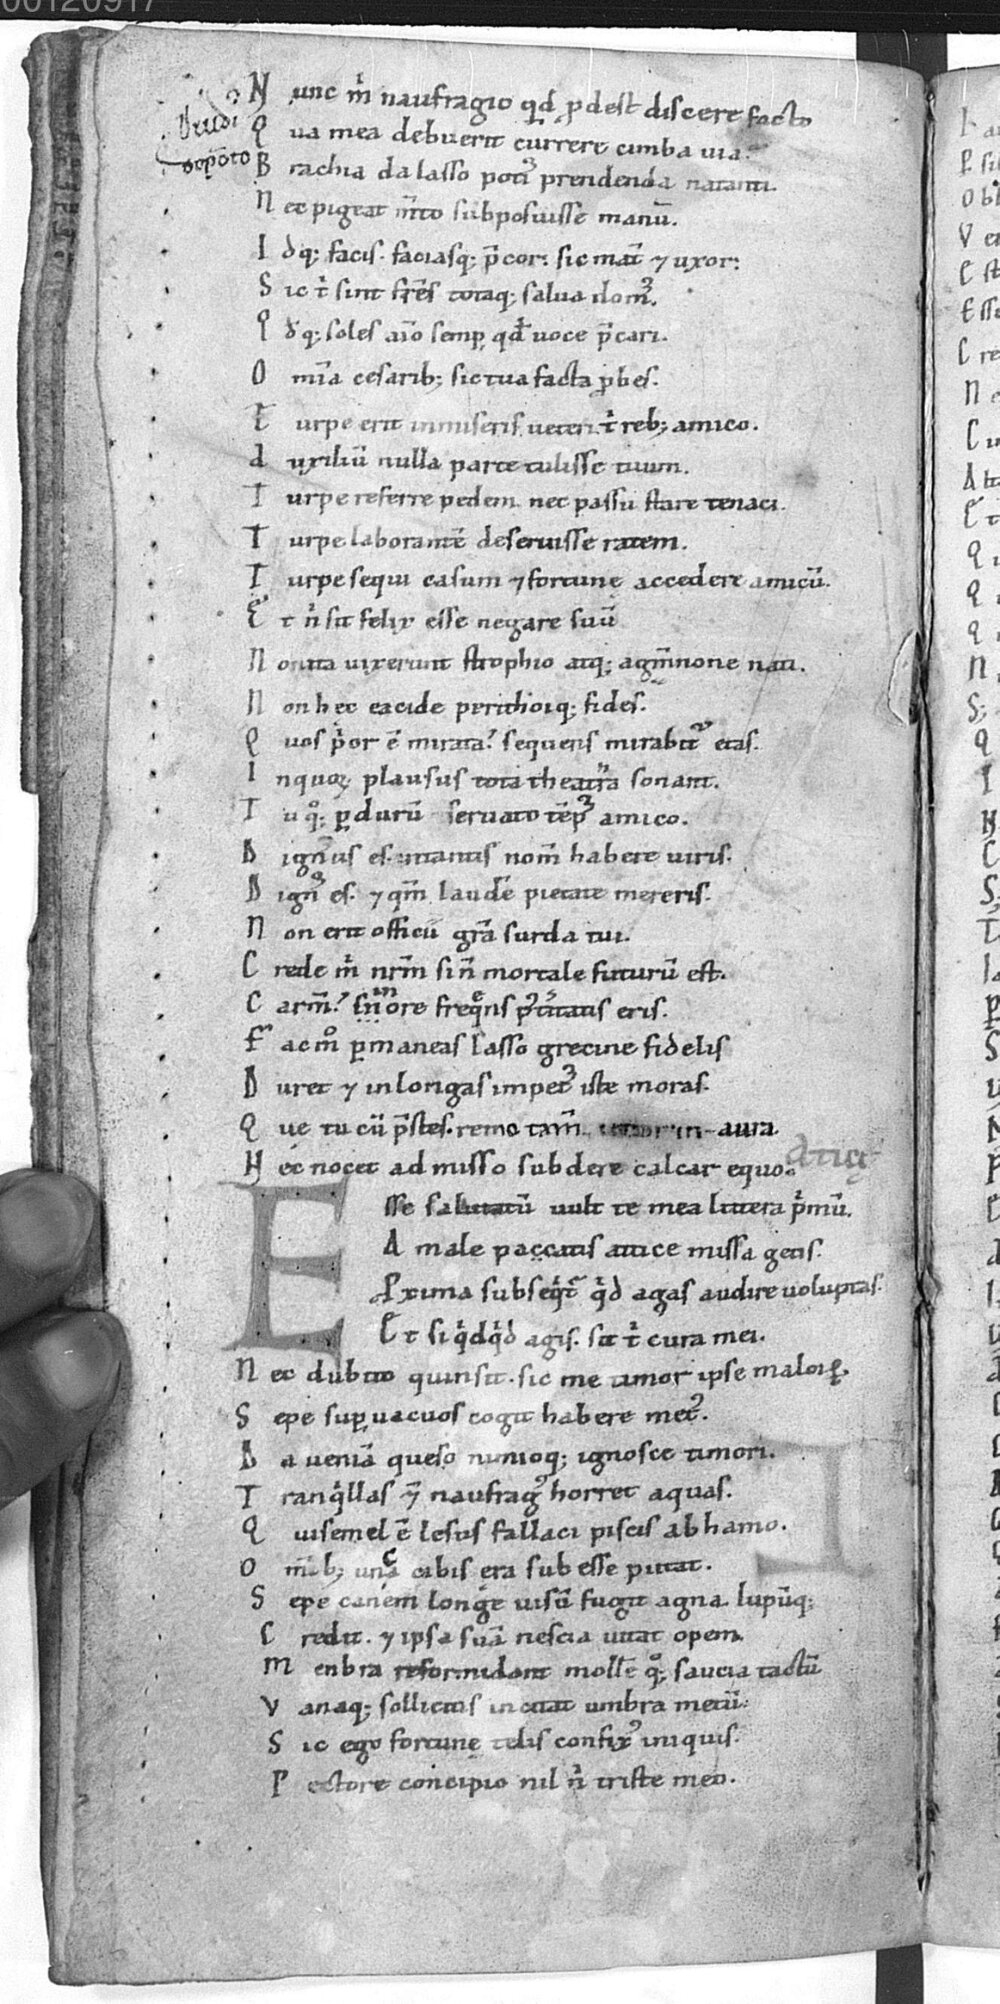 00120917
N unc m̅ naufragio qd̅ p̲dest discere facto
Q ua mea debuerit currere cimba uia.
B rachia da lasso potiꝰ prendenda natanti.
N ec pigeat m̅to subposuisse manu̅.
I dq; facis. faciasq; p̅cor: sic mat̅ ⁊ uxor:
S ic t̅ sint fr̅es totaq; salua domꝰ.
Q dq; soles aīo semp̲ qd̅ uoce p̅cari.
O mīa cesarib; sic tua facta p̲bes.
T urpe erit in miseris ueteri t̅ reb; amico.
A uxiliu̅ nulla parte tulisse tuum.
T urpe referre pedem nec passu stare tenaci.
T urpe laborante̅ deseruisse ratem.
T urpe sequi casum ⁊ fortunę accedere amicu̅.
E t n̅ sit felix esse negare suu̅
N on ita uixerunt strophio atq; agm̅none nati.
N on hec eacide perithoiq; fides.
Q uos p̅or e̅ mirata? sequens mirabit᷒ etas.
I n quoꝝ plausus tota theatra sonant.
T u qͦ; p̲ duru̅ seruato te̅pꝰ amico.
D ignus es. in tantis nom̅ habere uiris.
D ignꝰ es. ⁊ qm̅ laude̅ pietate mereris.
N on erit officii gr̅a surda tui.
C rede m̅ nr̅m si n̅ mortale futuru̅ est.
C arm̅? in ore freque̅s p̅t̅itatis eris.
F ac mͦ p̲maneas lasso grecine fidelis
D uret ⁊ in longas impetꝰ iste moras.
Q ue tu cu̅ p̅stes. remo tam̅ in aura.
N ec nocet admisso subdere calcar equo.
E sse salutatu̅ uult te mea littera p̅mu̅.
A male paccatis attice missa getis.
P̲xima subseqt̅ qd̅ agas audire uoluptas.
E t si qd̅qd̅ agis. sit t̅ cura mei.
N ec dubito quin sit. sic me timor ipse maloꝝ.
S epe sup̲uacuos cogit habere metꝰ.
D a uenia̅ queso nimioq; ignosce timori.
T ranq̅llas e̅ naufragꝰ horret aquas.
Q ui semel e̅ lesus fallaci piscis ab hamo.
O m̅ib; unca cibis era subesse putat.
S epe canem longe uisu̅ fugit agna. lupu̅q;
C redit. ⁊ ipsa sua̅ nescia uitat opem.
M enbra reformidant molle̅ qͦ; saucia tactu̅
V anaq; sollicitis incutit umbra metu̅.
S ic ego fortunę telis confixꝰ iniquis.
P ectore concipio nil n̅ triste meo.